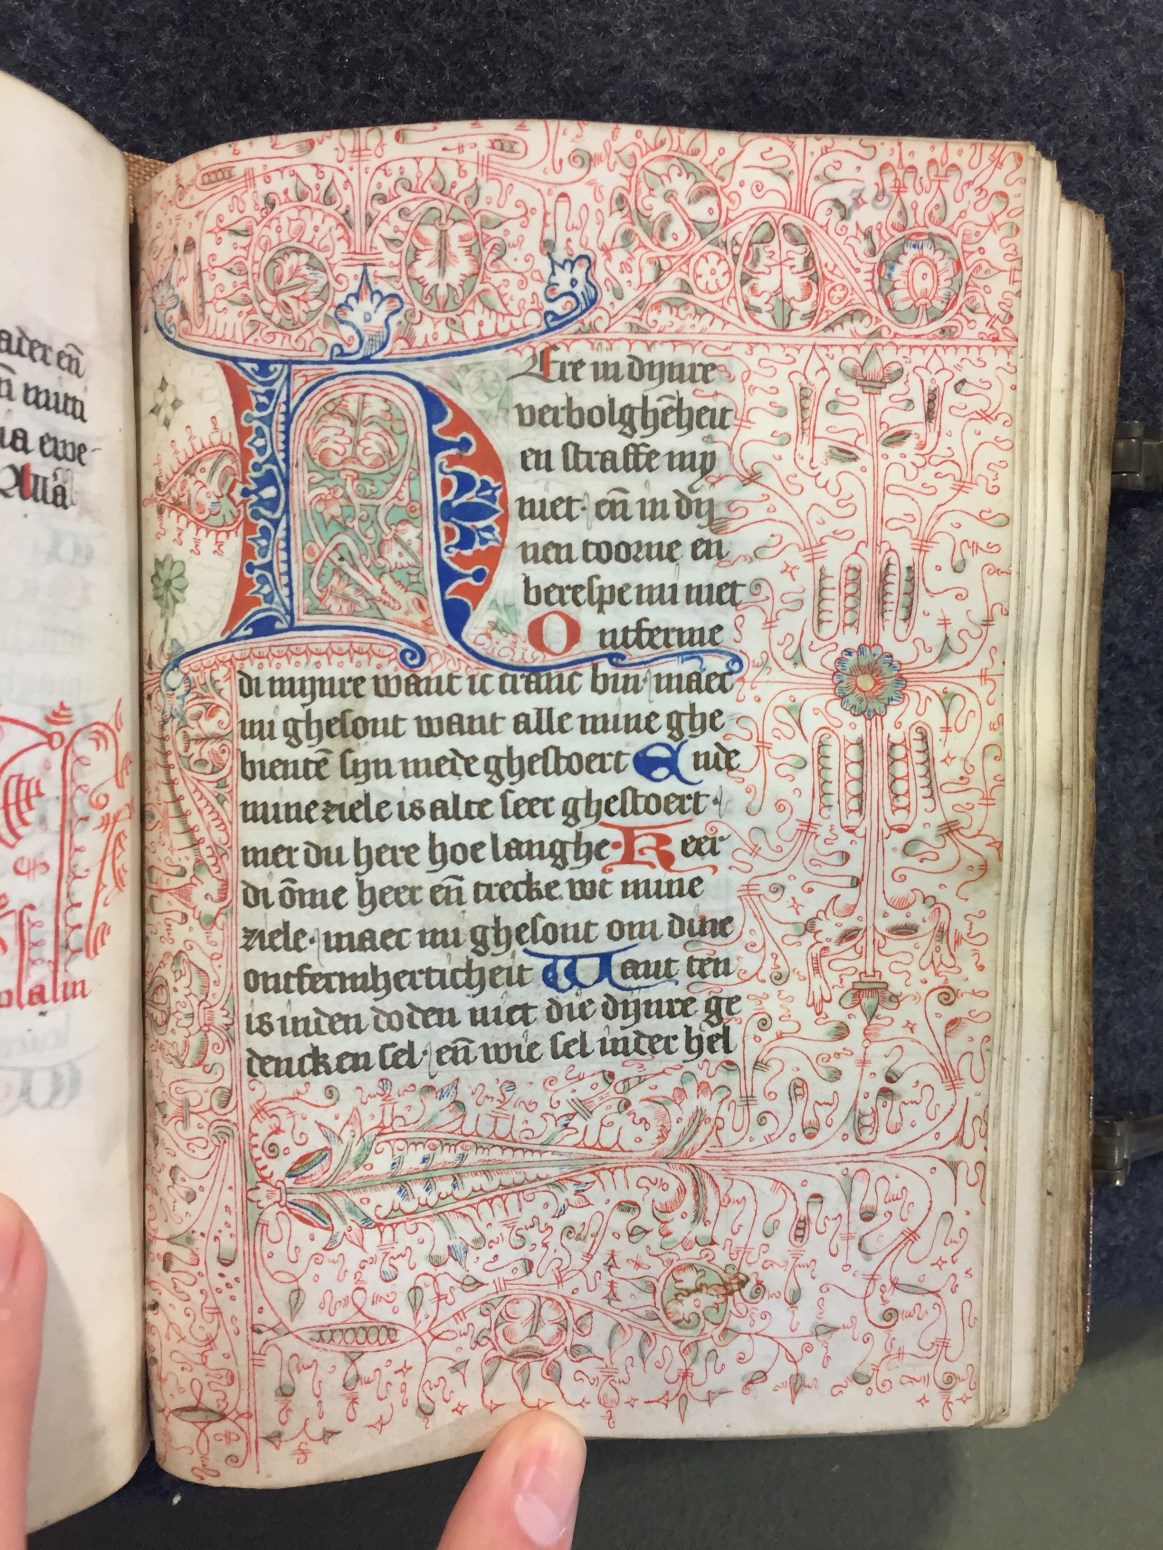 ader eñ
n mitti
ia ewe
Alla
psalm
HEre in dijnre
verbolghēheit
en straffe mij
niet· eñ in dij
nen toorne en
berespe mi niet
Ontferme
di mijnre want ic cranc bin maec
mi ghesont want alle mine ghe
biente sijn mede ghestoert Ende
mine ziele is alte seer ghestoert·
mer du here hoe langhe· Keer
di ōme heer eñ trecke wt mine
ziele· maec mi ghesont om dine
ontfermherticheit Want ten
is inden doden niet die dijnre ge
dencken sel· eñ wie sel inder hel